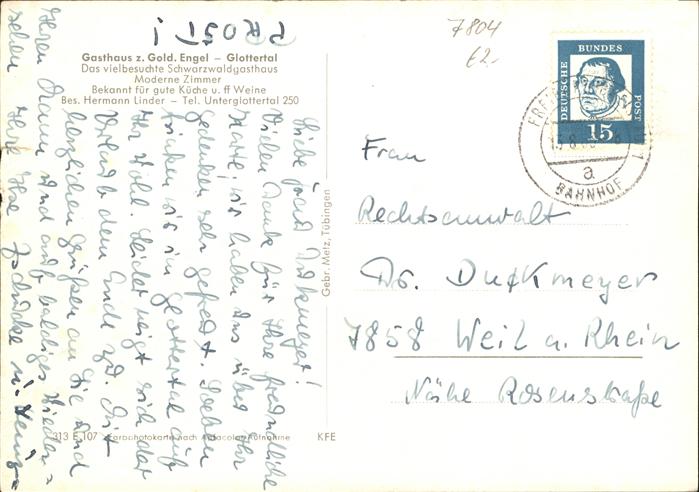 PROST!
Gasthaus z. Gold. Engel – Glottertal
Das vielbesuchte Schwarzwaldgasthaus
Moderne Zimmer
Bekannt für gute Küche u. ff Weine
Bes. Hermann Linder – Tel. Unterglottertal 250
Liebe Frau Dutkmeyer!
Vielen Dank für Ihre freundliche
Karte; wir haben uns über Ihr
Gedenken sehr gefreut. Soeben
trinken wir im Glottertal auf
Ihr Wohl. Leider neigt sich der
Urlaub dem Ende zu. Mit
herzlichen Grüßen an Sie und
Ihren Mann und auf baldiges Wieder=
sehen Ihre
Gebr. Metz, Tübingen
313 E 107 Farbphotokarte nach Autocolor-Aufnahme KFE
7804
€2.-
DEUTSCHE BUNDES POST
15
FREIBURG
1
a
BAHNHOF
Frau
Rechtsanwalt
Dr. Dutkmeyer
7858 Weil a. Rhein
Nähe Rosenstraße